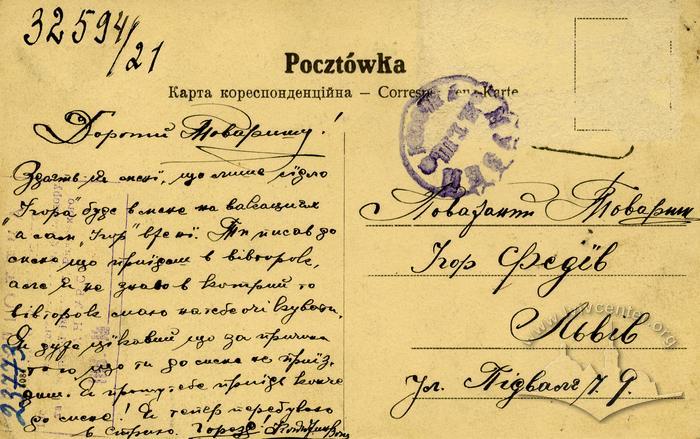 32594/21
Pocztówka
Карта кореспонденційна – Corresp
Дорогий Товаришу!
Здаєть ся мені, що лише тіло
„Ігора буде в мене на вакаціях
а сам „Ігор" в
Ти писав до
мене що приїдеш в вівторок,
але я не знаю в котрий то
вівторок маю на тебе очікувати.
Я дуже цікавий що за причина
того що ти до мене не приїз-
диш. Я прошу тебе приїдь конче
до мене! Я тепер перебуваю
в Стрию. Гаразд!
Поважаний Товариш
Ігор Федів
Львів
Ул. Підвалє 9.
23773
www.lvivcenter.org